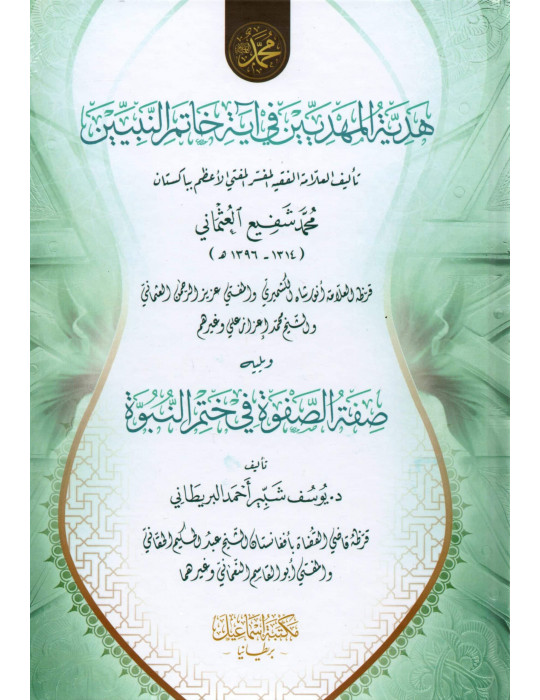 محمد ﷺ
هدية المهديين في آية خاتم النبيين
تأليف العلامة الفقيه المفسر المفتي الأعظم بباكستان
محمد شفيع العثماني
(١٣١٤ - ١٣٩٦ هـ)
قرظه العلامة أنور شاه الكشميري والمفتي عزيز الرحمن العثماني
والشيخ محمد إعزاز علي وغيرهم
ويليه
صفة الصفوة في ختم النبوة
تأليف
د. يوسف شبير أحمد البريطاني
قرظه قاضي القضاة بأفغانستان الشيخ عبد الحكيم الحقاني
والمفتي أبو القاسم النعماني وغيرهما
مكتبة إسماعيل
- بريطانيا -